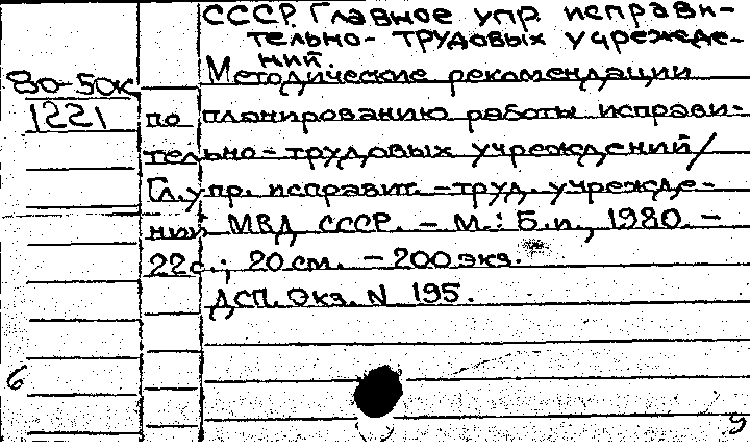 СССР. Главное упр. исправи-
тельно-трудовых учрежде-
ний.
80-50к Методические рекомендации
1221 по планированию работы исправи-
тельно-трудовых учреждений/
Гл. упр. исправит.-труд. учрежде-
ний МВД СССР. - М.: Б.и., 1980. -
22с.; 20 см. - 200 экз.
ДСП. Экз. N 195.
6